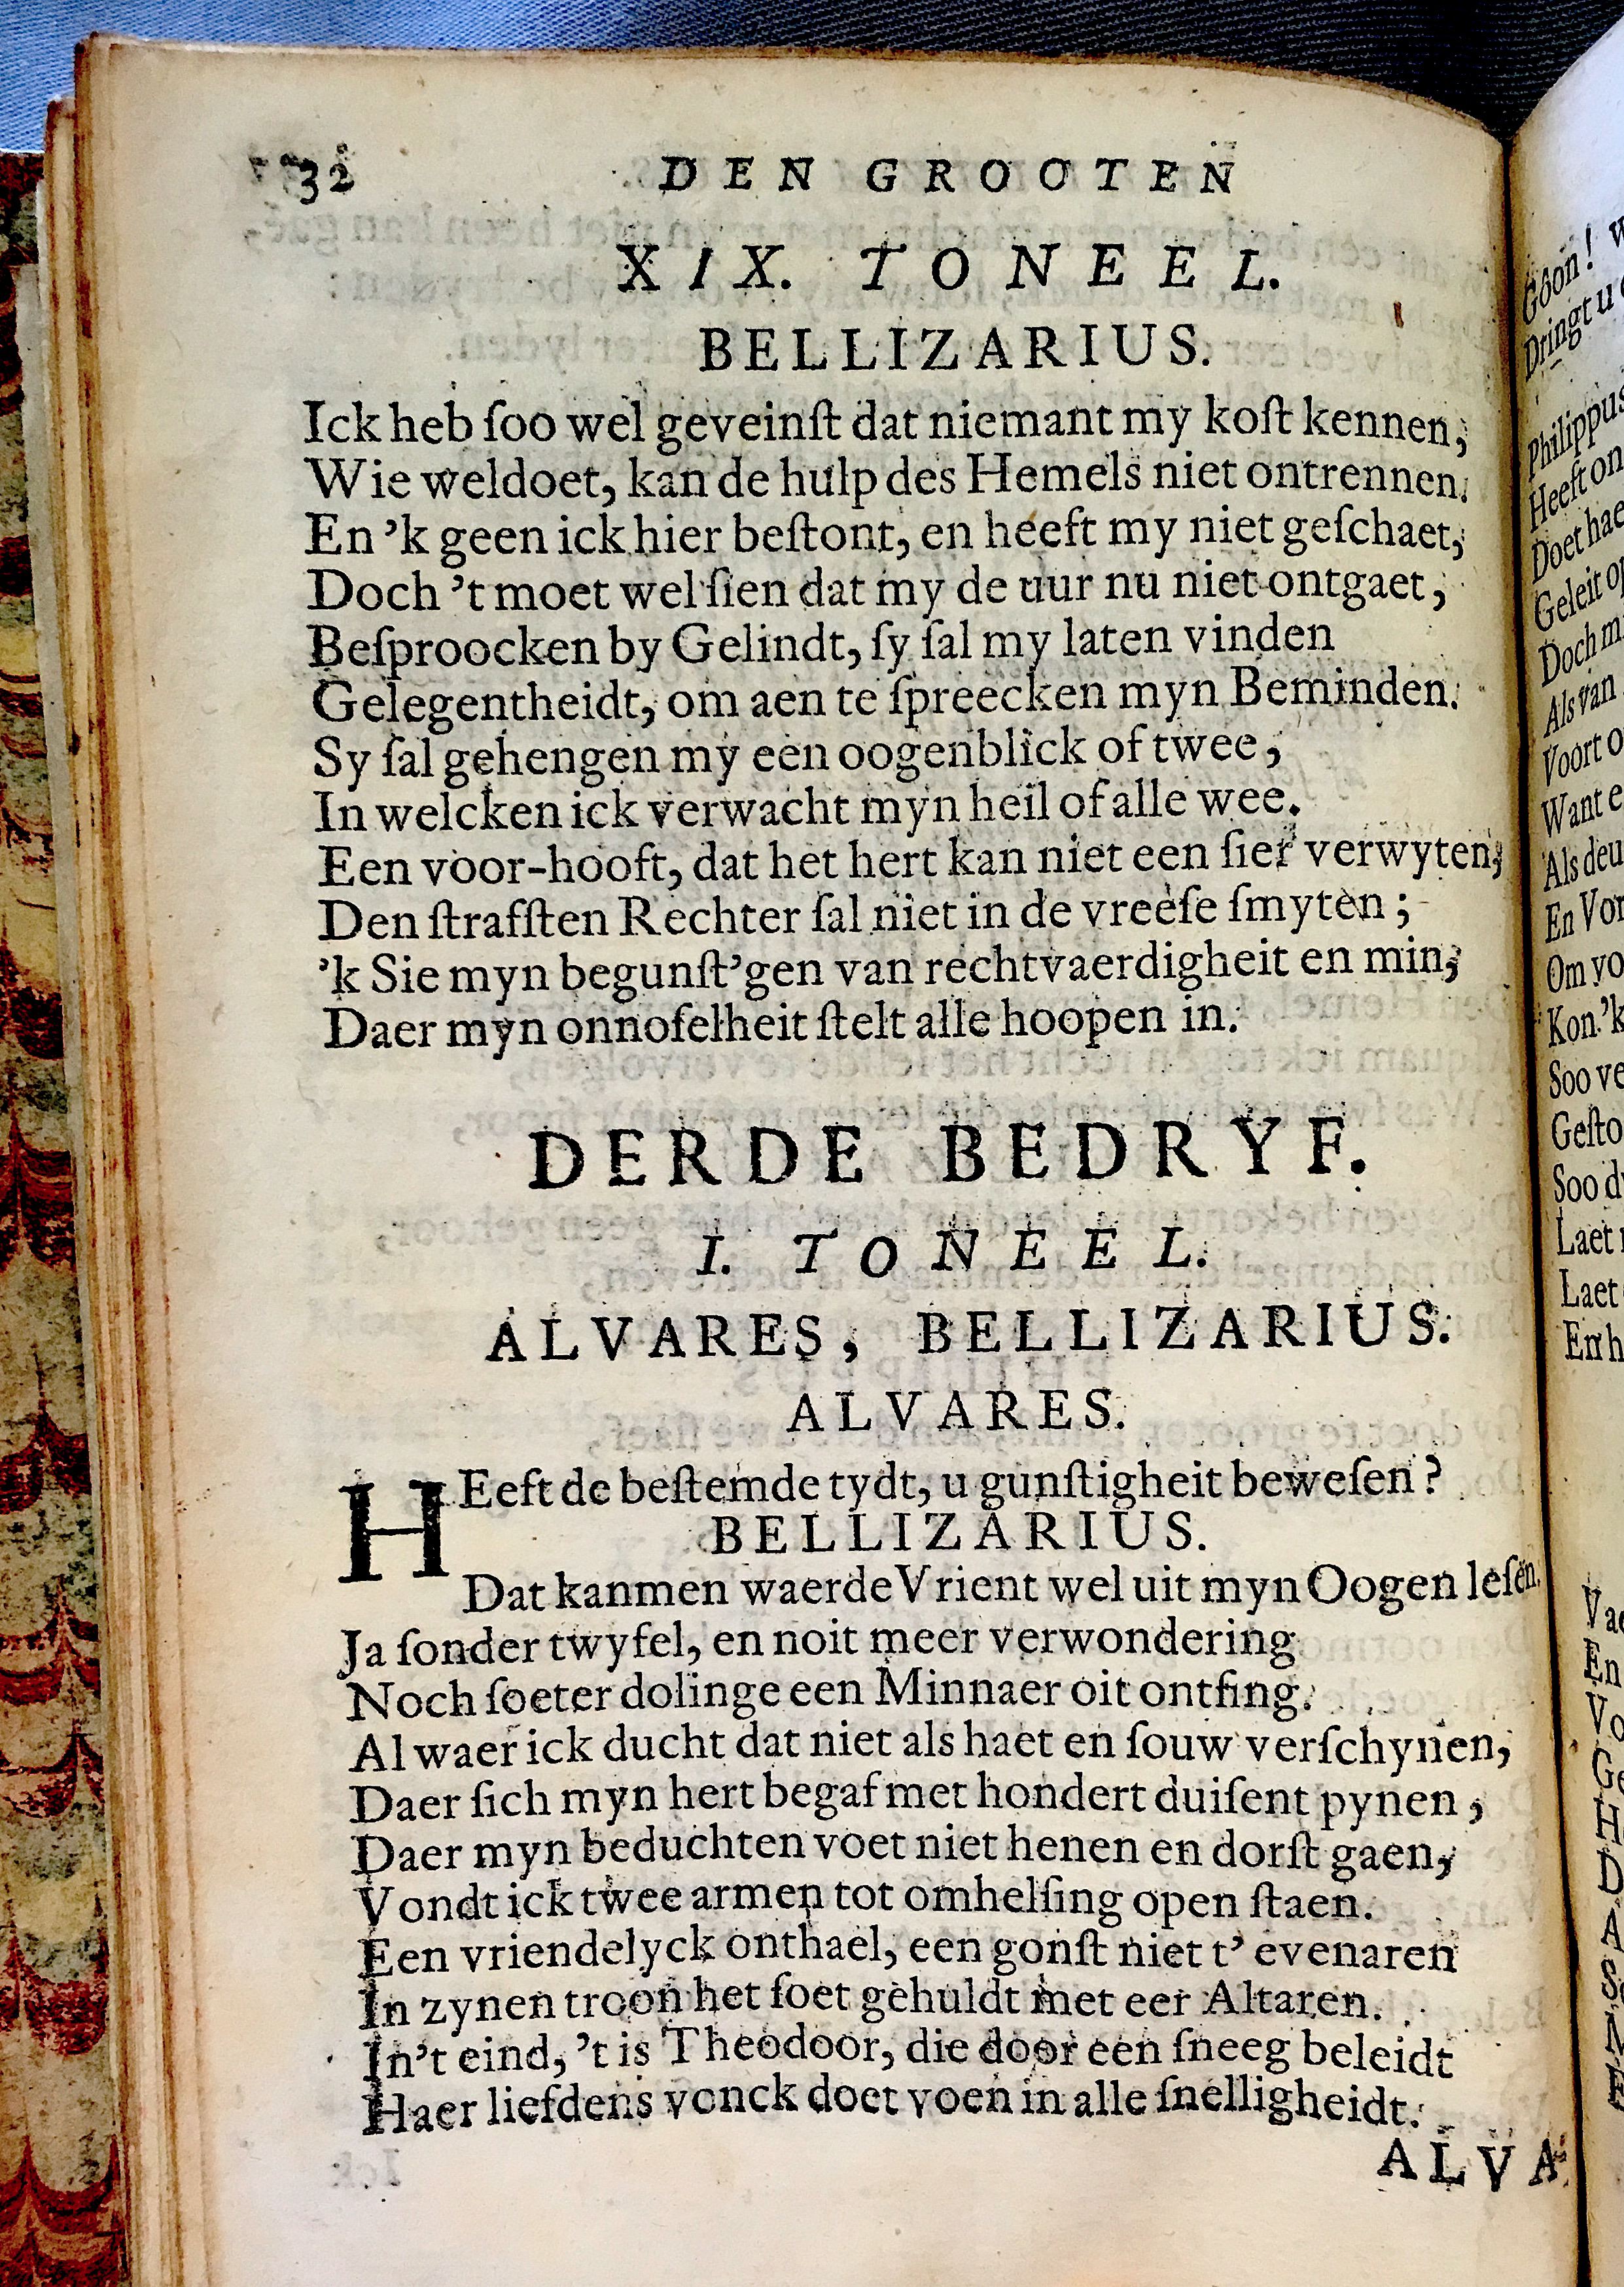 32 DEN GROOTEN
XIX. TONEEL.
BELLIZARIUS.
Ick heb ſoo wel geveinſt dat niemant my koſt kennen,
Wie weldoet, kan de hulp des Hemels niet ontrennen.
En 'k geen ick hier beſtont, en heeft my niet geſchaet,
Doch 't moet wel ſien dat my de uur nu niet ontgaet,
Beſproocken by Gelindt, ſy ſal my laten vinden
Gelegentheidt, om aen te ſpreecken myn Beminden.
Sy ſal gehengen my een oogenblick of twee,
In welcken ick verwacht myn heil of alle wee.
Een voor-hooft, dat het hert kan niet een ſier verwyten,
Den ſtrafſten Rechter ſal niet in de vreeſe ſmyten;
'k Sie myn begunſt'gen van rechtvaerdigheit en min,
Daer myn onnoſelheit ſtelt alle hoopen in.
DERDE BEDRYF.
I. TONEEL.
ALVARES, BELLIZARIUS.
ALVARES.
HEeft de beſtemde tydt, u gunſtigheit beweſen?
BELLIZARIUS.
Dat kanmen waerde Vrient wel uit myn Oogen leſen.
Ja ſonder twyfel, en noit meer verwondering
Noch ſoeter dolinge een Minnaer oit ontfing.
Al waer ick ducht dat niet als haet en ſouw verſchynen,
Daer ſich myn hert begaf met hondert duiſent pynen,
Daer myn beduchten voet niet henen en dorſt gaen,
Vondt ick twee armen tot omhelſing open ſtaen.
Een vriendelyck onthael, een gonſt niet t' evenaren
In zynen troon het ſoet gehuldt met eer Altaren.
In't eind, 't is Theodoor, die door een ſneeg beleidt
Haer liefdens vonck doet voen in alle ſnelligheidt.
ALVA
Goon!
Dringt u
Philippus
Heeft
Doet
Geleit
Doch
Als van
Voort
Want
Als
En
Om
Kon 'k
Soo
Soo
Laet
Laet
En
En